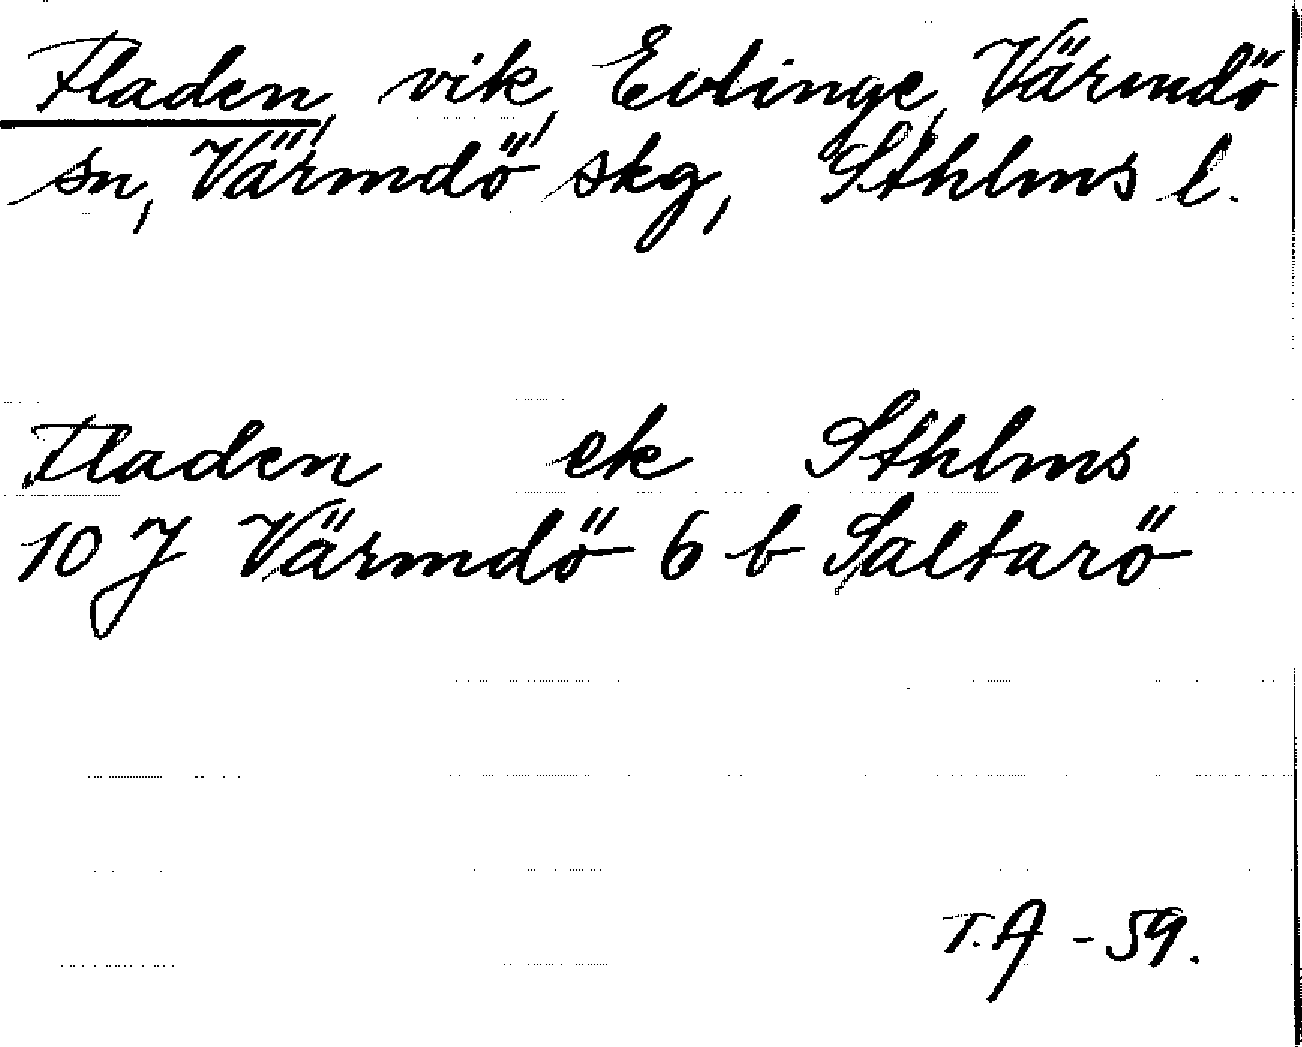 Fladen, vik, Evlinge, Värmdö
sn, Värmdö skg, Sthlms l.
Fladen ek Sthlms
10 J Värmdö 6 b Saltarö
T.A - 59.